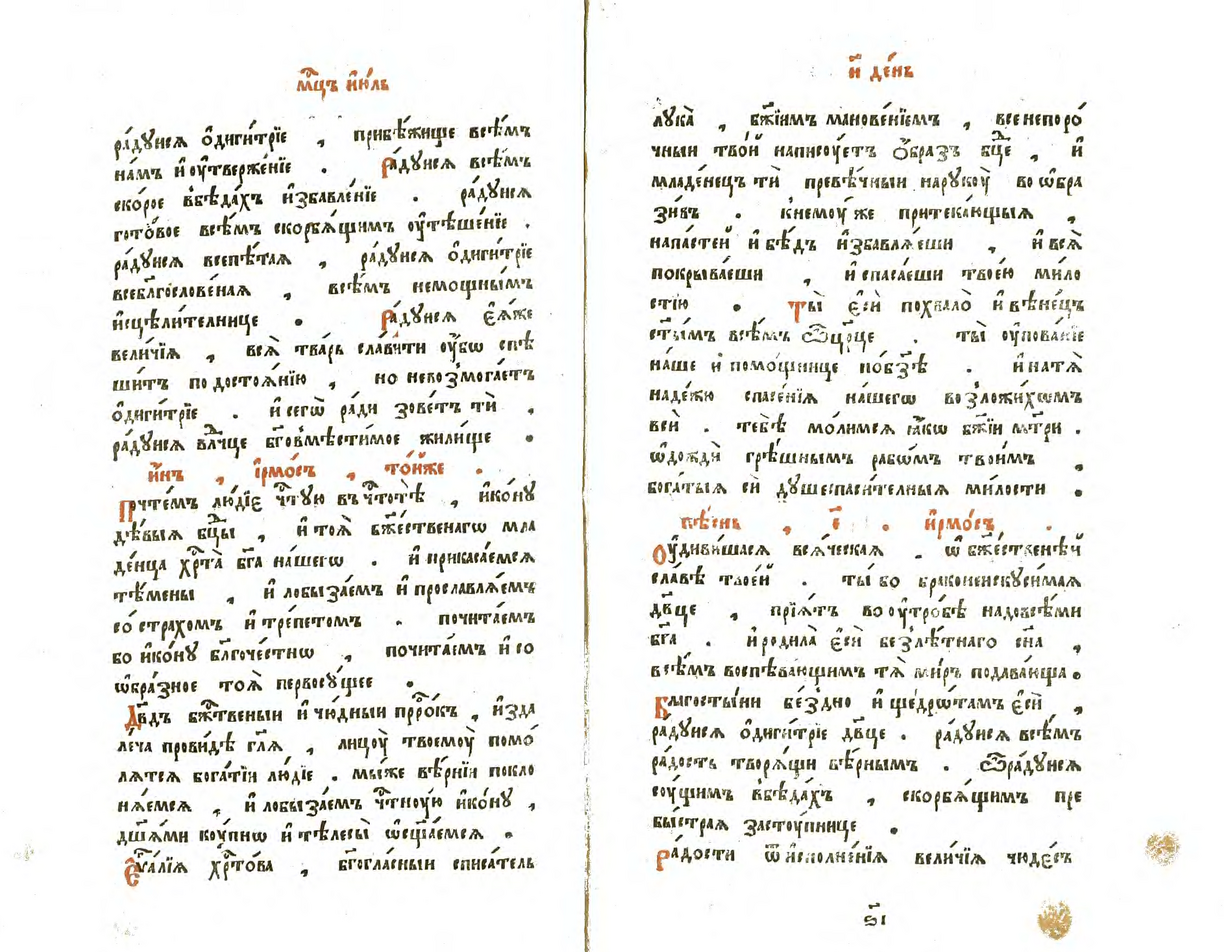 мⷭ҇цъ і҆ю́ль
ра́дꙋисѧ ѻ҆диги́трїе , прибѣ́жище всѣ́мъ
на́мъ и҆ ᲂу҆твержє́нїе . Ра́дꙋисѧ всѣ́мъ
ско́рое вбѣда́хъ и҆збавле́нїе . ра́дꙋисѧ
гото́вое всѣ́мъ скорбѧ́щимъ ᲂу҆тѣше́нїе .
ра́дꙋисѧ всепѣ́таѧ , ра́дꙋисѧ ѻ҆диги́трїе
всебл҃гослове́наѧ , всѣ́мъ немощны́мъ
и҆сцѣли́телнице . Ра́дꙋисѧ є҆ѧ́же
вели́чїѧ , всѧ̀ тва́рь сла́вити ᲂу҆́бѡ спѣ
ши́тъ по досто́ѧнїю , но невозмога́етъ
ѻ҆диги́трїе . и҆ сегѡ̀ ра́ди зове́тъ тѝ ,
ра́дꙋисѧ влⷣчце бг҃овмѣсти́мое жили́ще .
и҆́нъ , і҆рмо́съ , то́йже .
Почте́мъ лю́дїє чⷭ҇тꙋю въ чⷭ҇тотѣ̀ , и҆ко́нꙋ
дѣ́выѧ бцⷣы , и҆ тоѧ̀ бж҃е́ственагѡ мла
де́нца хрⷭ҇та̀ бг҃а на́шегѡ . и҆ прикаса́емсѧ
тѣ́мены , и҆ лобыза́емъ и҆ прославлѧ́емъ
со стра́хомъ и҆ тре́петомъ . почита́емъ
бо и҆ко́нꙋ бл҃гоче́стнѡ , почита́емъ и҆ со
ѡ҆бра́зное тоѧ̀ первосꙋ́щее .
Дв҃дъ бжⷭ҇твеныи и҆ чю́дныи прⷪ҇ро́къ , и҆зда
ле́ча прови́дѣ гл҃ѧ , лицоу̀ твоемоу̀ помо́
лѧтсѧ бога́тїи лю́дїе . мы́же вѣ́рнїи покло
нѧ́емсѧ , и҆ лобыза́емъ чⷭ҇тноу́ю и҆ко́нꙋ ,
дш҃ѧ́ми коу́пнѡ и҆ тѣлесы̀ ѡ҆сщ҃а́емсѧ .
Єѵⷢ҇а́лїѧ хрⷭ҇то́ва , бг҃огла́сныи списа́тель
и҃ де́нь
лꙋка̀ , бж҃їимъ манове́нїемъ , всенепоро́
чныи тво́й написоу́етъ ѻ҆́бразъ бцⷣе , и҆
младе́нецъ тѝ преве́чныи нарꙋкоу̀ во ѡ҆бра
зи́въ . кнемоу́же притека́ющыѧ ,
напа́стей и҆ бѣ́дъ и҆збавлѧ́еши , и҆ всѧ̀
покрыва́еши , и҆ спаса́еши твое́ю ми́ло
стїю . Ты̀ є҆сѝ похвало̀ и҆ вѣне́цъ
ст҃ы́мъ всѣ́мъ ѻ҆тр҃цце . ты̀ ᲂу҆пова́нїе
на́ше и҆ помо́щнице по́бз҃ѣ . и҆ натѧ̀
наде́жю спасе́нїѧ на́шегѡ возложи́хѡмъ
всѝ . тебѣ̀ мо́лимсѧ ꙗ҆́кѡ бж҃їи мт҃ри .
ѡ҆дождѝ грѣ́шнымъ рабѡ́мъ твои́мъ ,
бога́тыѧ сѝ дꙋшеспаси́телныѧ ми́лости .
пѣ́снь , є҃ . и҆рмо́съ .
Оу҆диви́шасѧ всѧ́ческаѧ . ѡ҆ бж҃е́ственѣй
сла́вѣ твое́й . ты́ бо браконеискꙋси́маѧ
дв҃це , прїѧ́тъ во ᲂу҆тро́бѣ надовсѣ́ми
бг҃а . и҆ роди́ла є҆сѝ безлѣ́тнаго сн҃а ,
всѣ́мъ воспѣва́ющимъ тѧ̀ ми́ръ подава́юща .
Благосты́ни бе́здно и҆ щедрѡ́тамъ є҆сѝ ,
ра́дꙋисѧ ѻ҆диги́трїе дв҃це . ра́дꙋисѧ всѣ́мъ
ра́дость творѧ́щи вѣ́рнымъ . ѿра́дꙋисѧ
соу́щимъ вбѣда́хъ , скорбѧ́щимъ пре
бы́страѧ засто́упнице .
Ра́дости ѿ и҆сполне́нїѧ вели́чїѧ чюде́съ
ѕ҃і